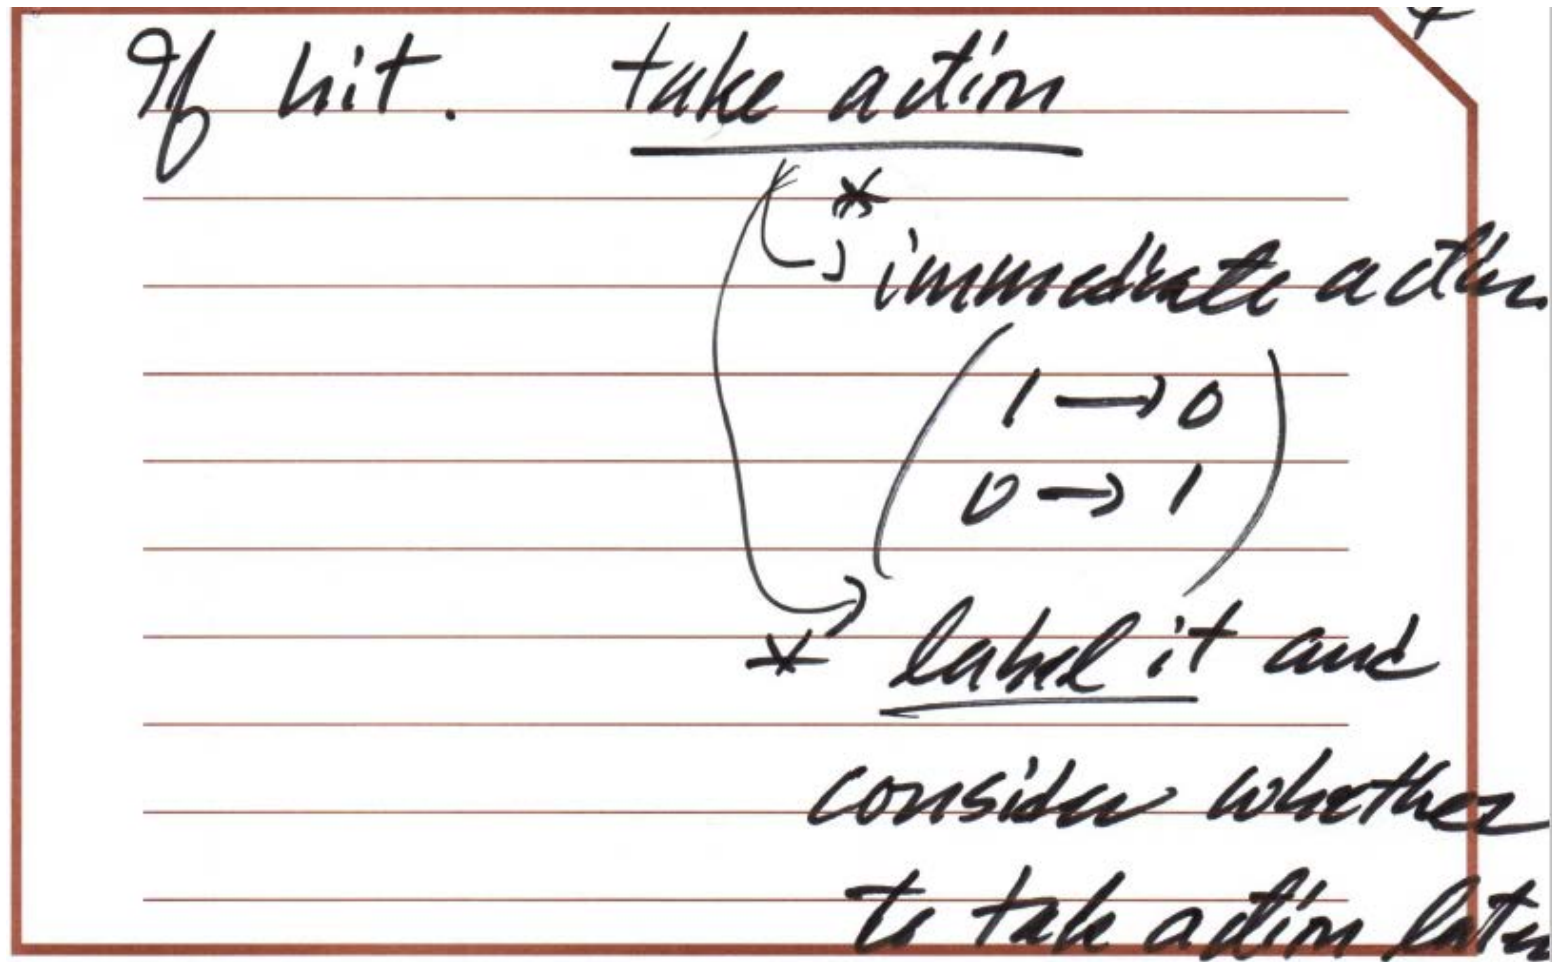 If hit. take action
*
immediate action
( 1 → 0 )
0 → 1
* label it and
consider whether
to take action later